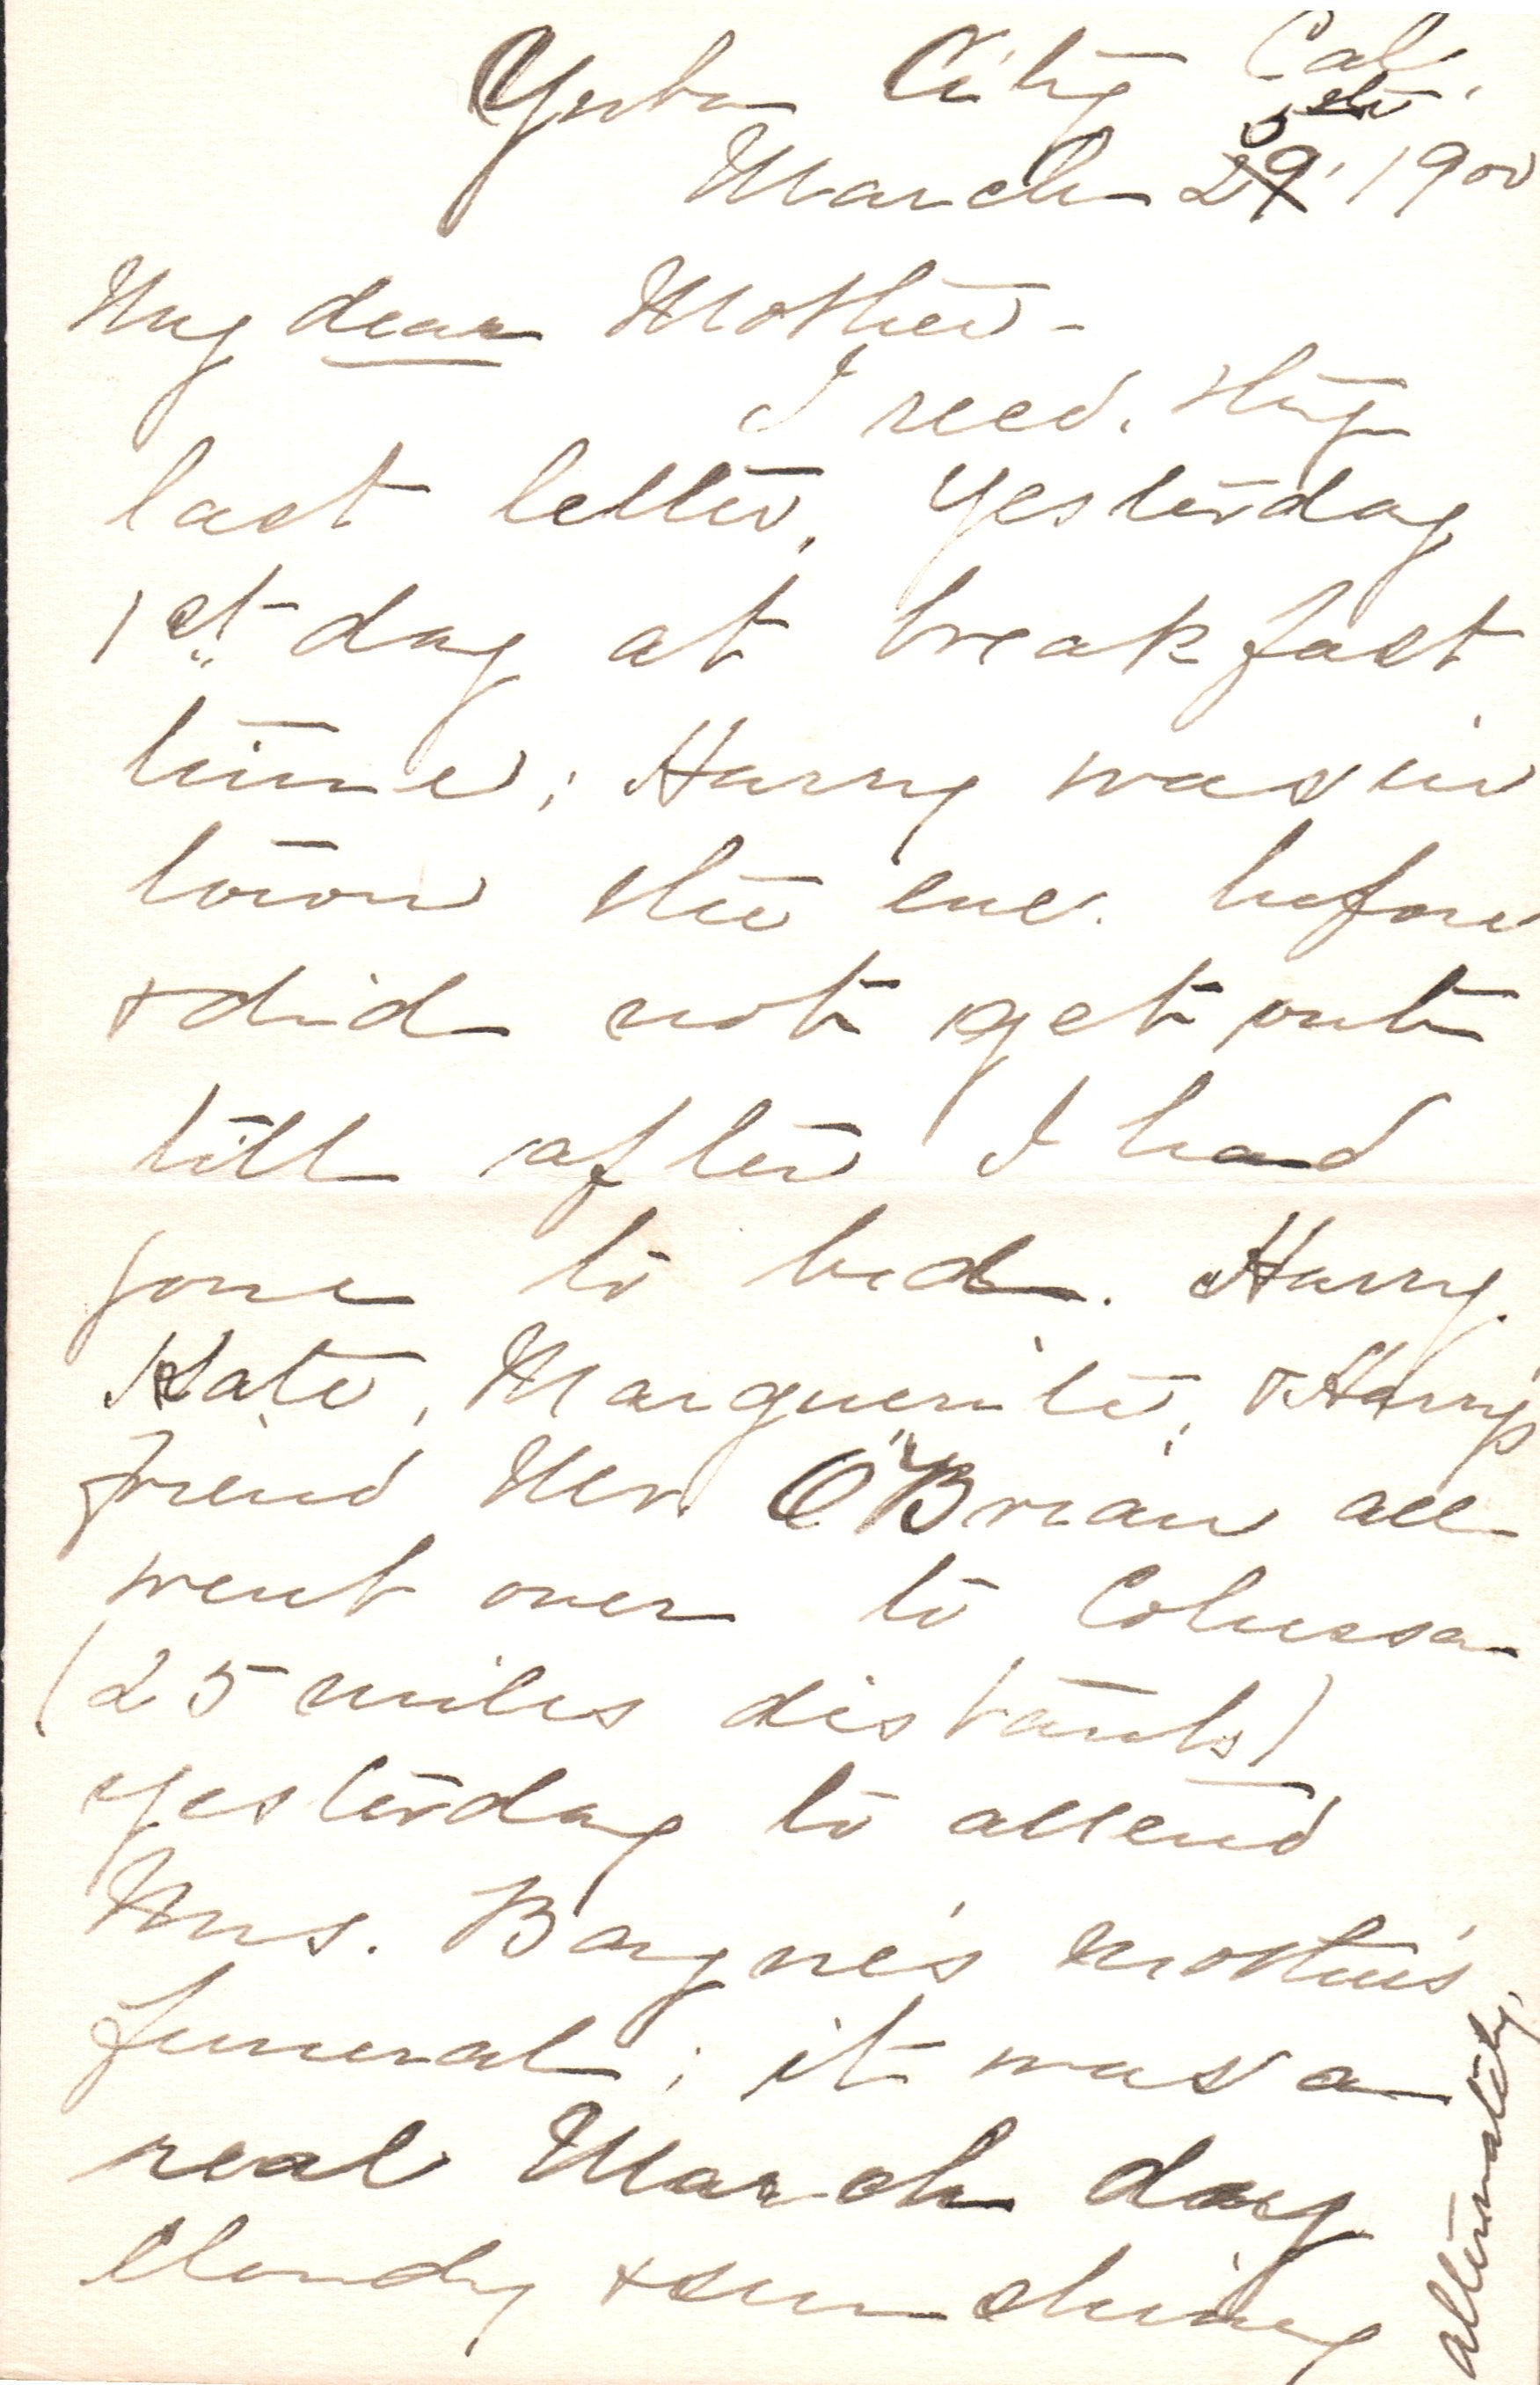 Yuba City Cal.
March 5th 29, 1900
My dear Mother-
I recd. thy
last letter, yesterday
1st day at breakfast
time; Harry was in
town the eve. before
& did not get out
till after I had
gone to bed. Harry,
Kate, Marguerite, & Harry's
friend Mr. O'Brian all
went over to Colussa
(25 miles distant)
yesterday to attend
Mrs. Boyne's mother's
funeral; it was a
real March day
cloudy & sun shiney
alternately,